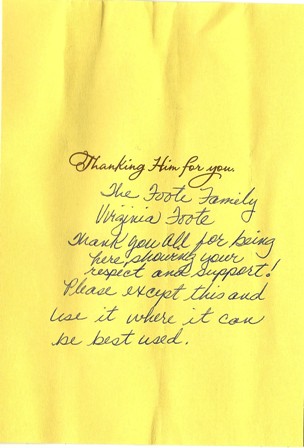 Thanking Him for you.
The Foote Family
Virginia Foote
Thank you All for being
here, showing your
respect and support!
Please except this and
use it where it can
be best used.